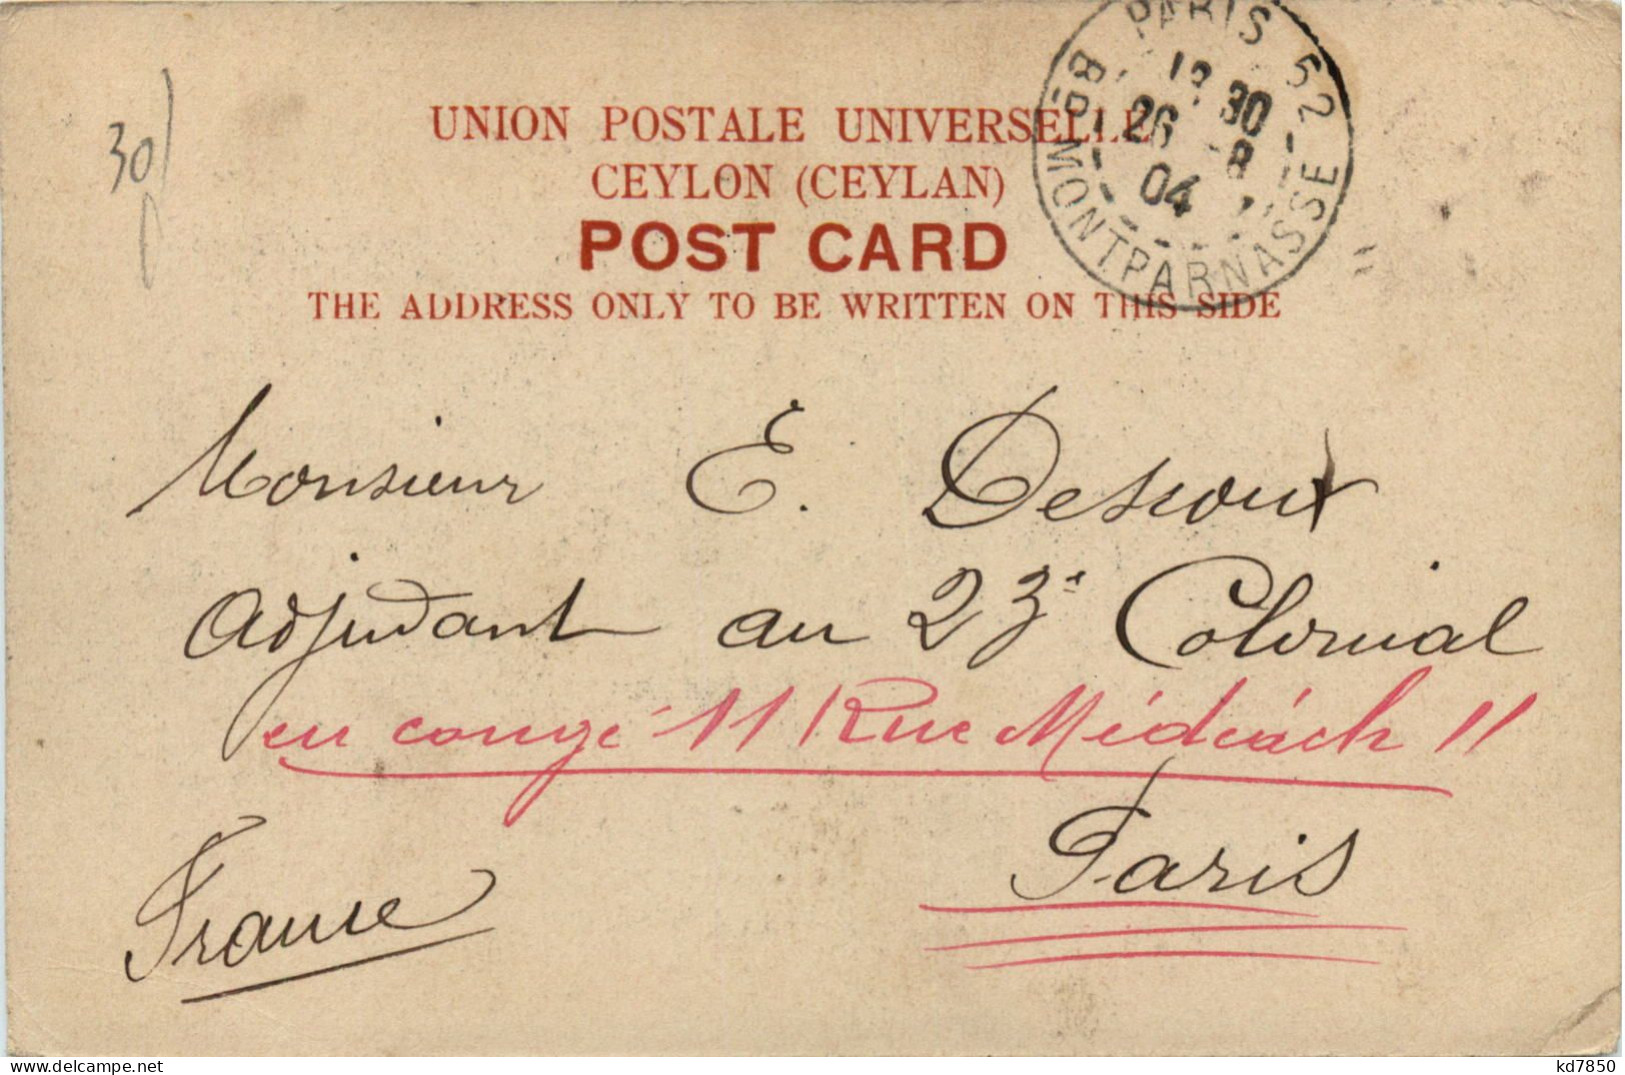 30
UNION POSTALE UNIVERSELLE
CEYLON (CEYLAN)
POST CARD
THE ADDRESS ONLY TO BE WRITTEN ON THIS SIDE
PARIS 52
18 30
26 8
04
BD MONTPARNASSE
Monsieur E. Descoux
Adjudant au 23e Colonial
en congé 11 Rue Médéach 11
Paris
France
kd7850